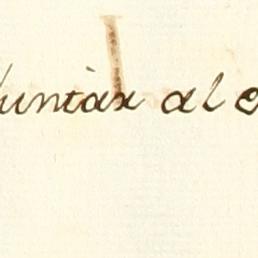 juntàr al